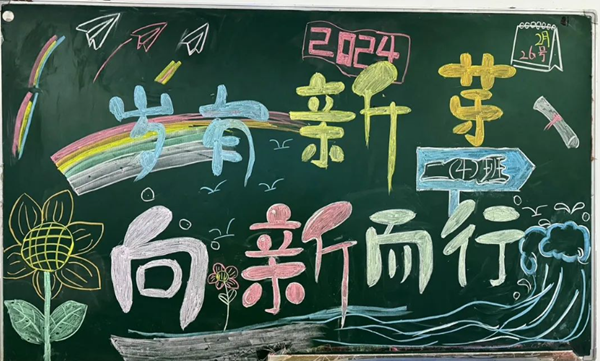 2024
2月
26号
岁有新芽
二(4)班
向新而行